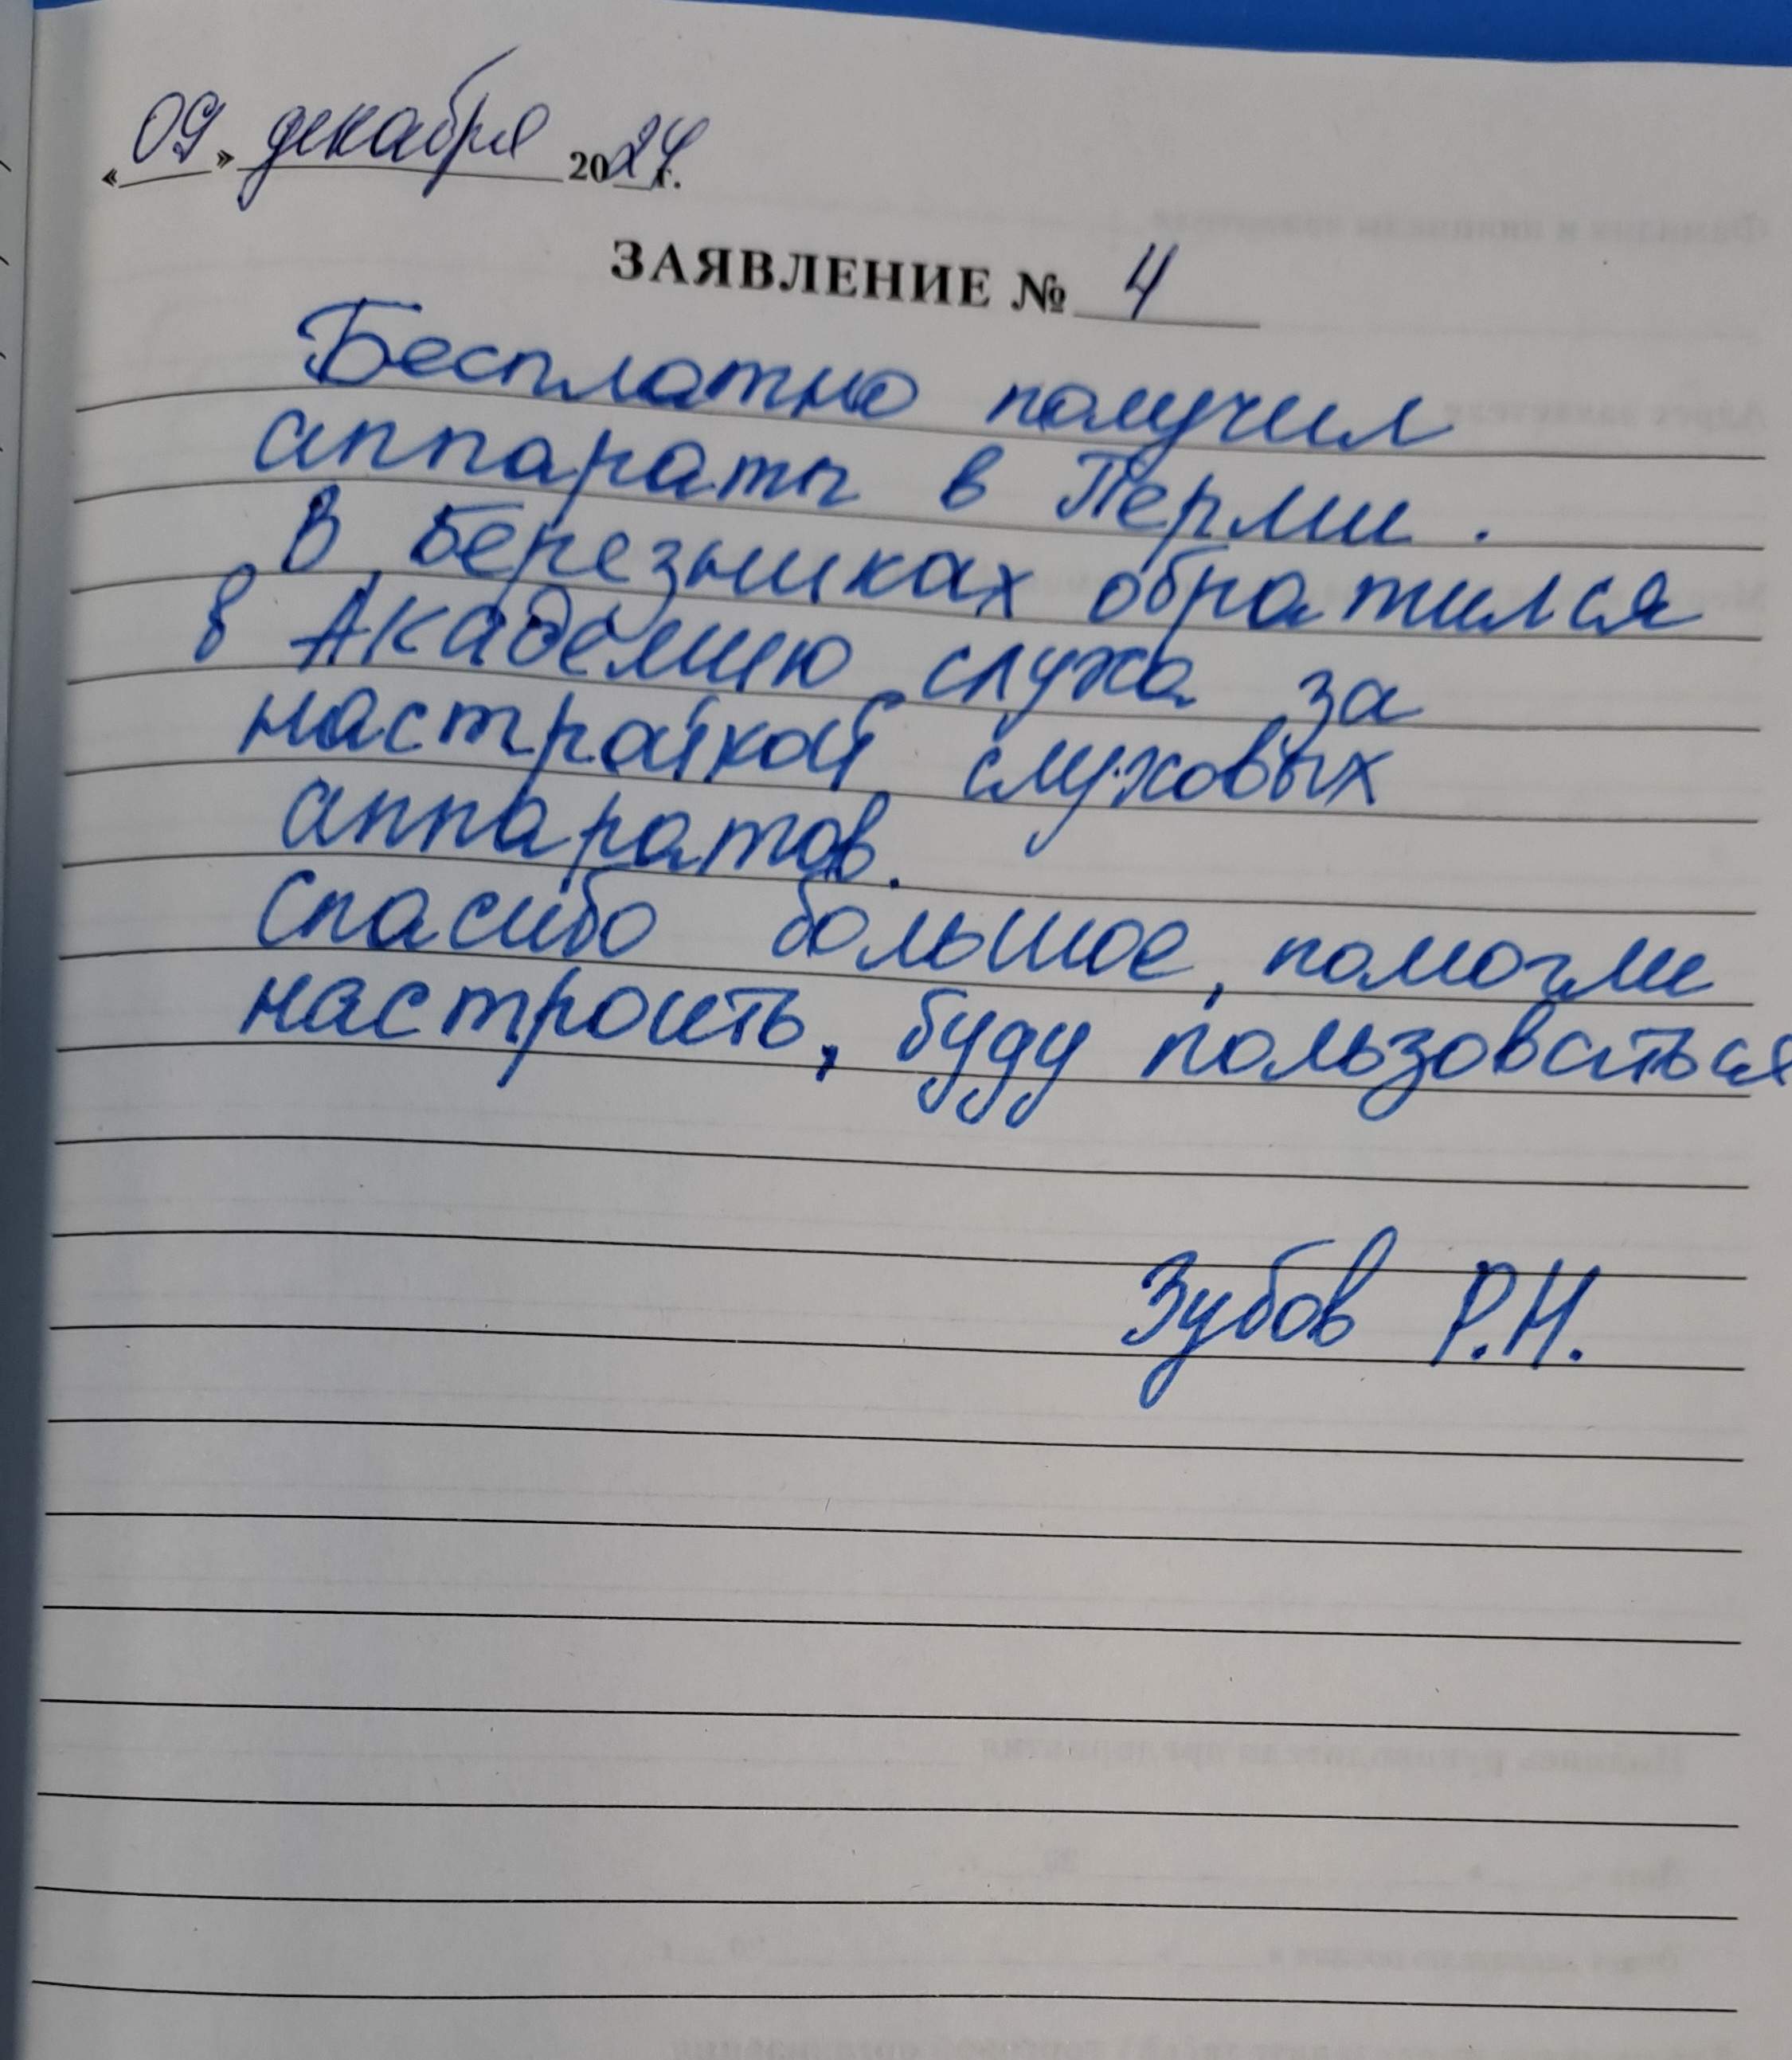 «09» декабря 2024г.
ЗАЯВЛЕНИЕ № 4
Бесплатно получил
аппараты в Перми.
В Березниках обратился
в Академию слуха за
настройкой слуховых
аппаратов.
Спасибо большое, помогли
настроить, буду пользоваться
Зубов Р.Н.